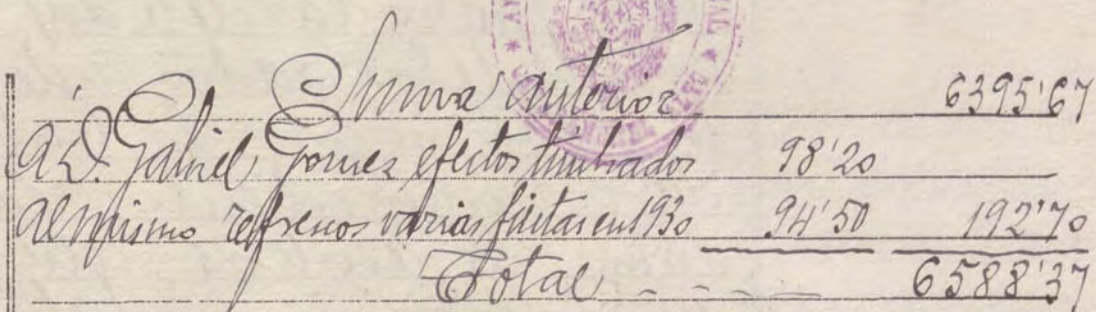 Suma anterior 6395'67
á D. Gabriel Gomez efectos timbrados 98'20
Al mismo refrescos varias fiestas en 1930 94'50 192'70
Total - - - - 6588'37